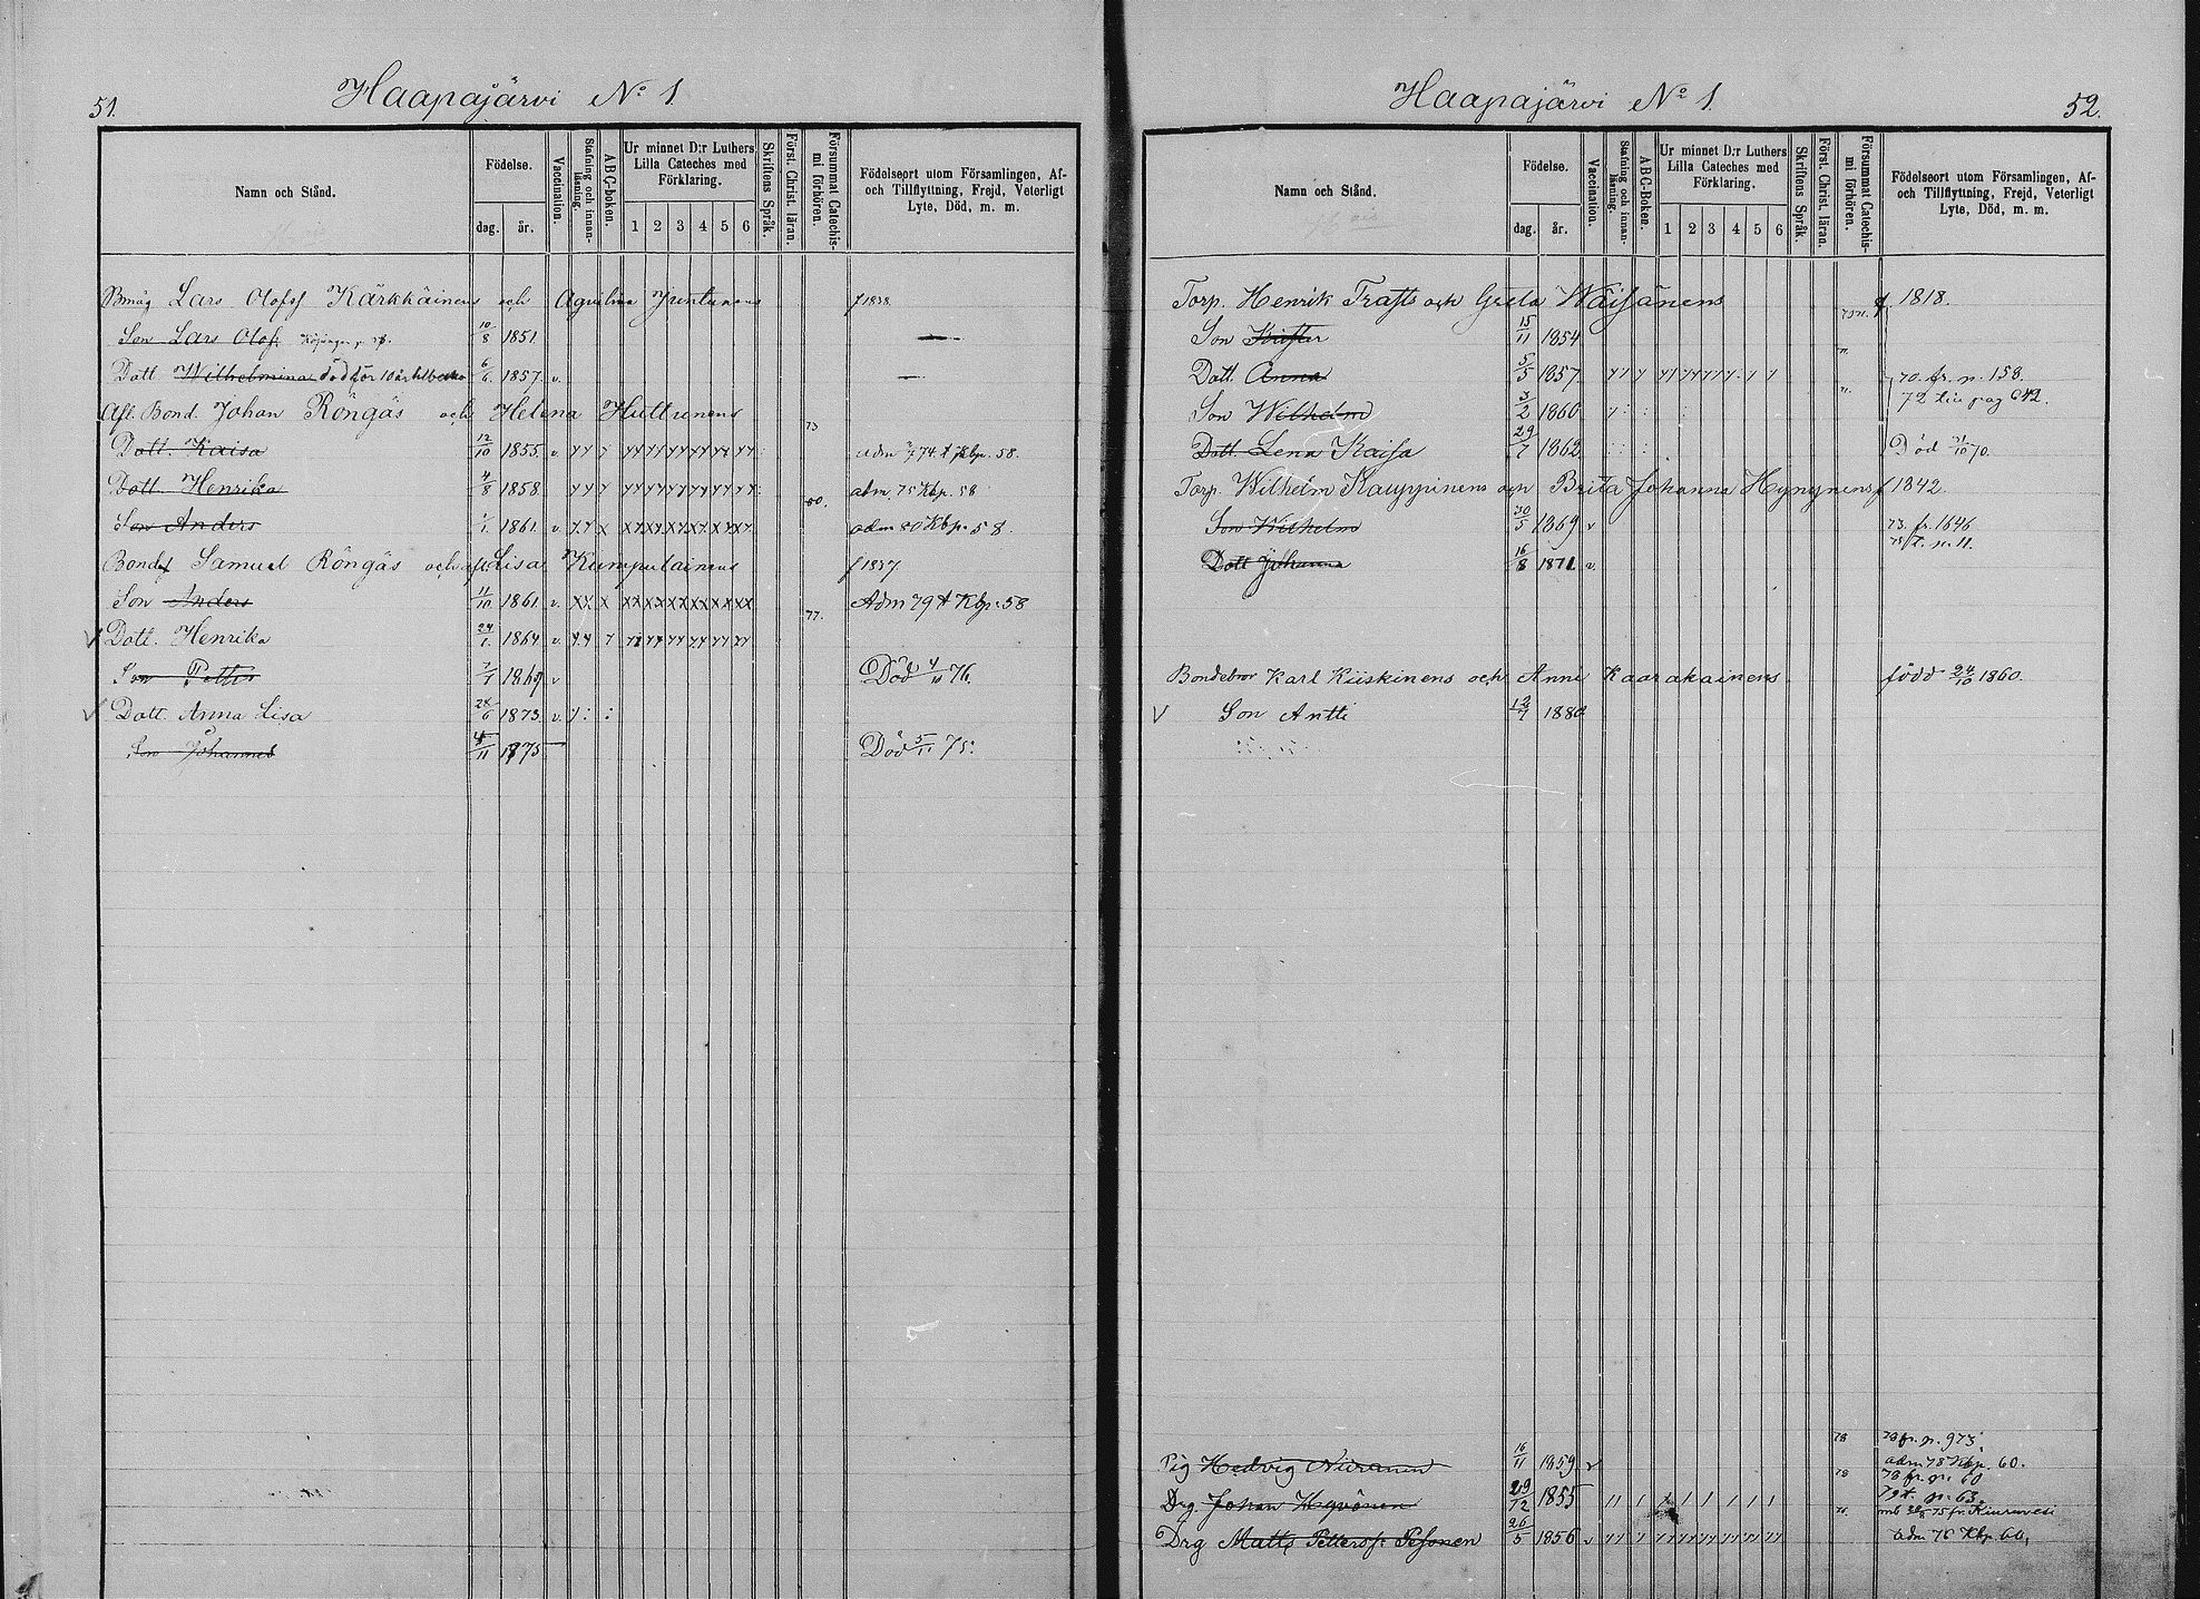 51.
Haapajärvi No 1.
Namn och Stånd.
Födelse.
dag.
år.
Vaccination.
Stafning och innanläsning.
ABC-boken.
Ur minnet D:r Luthers Lilla Cateches med Förklaring.
1 2 3 4 5 6
Skriftens Språk.
Först. Christ. läran.
Försummat Catechismi förhören.
Födelseort utom Församlingen, Af- och Tillflyttning, Frejd, Veterligt Lyte, Död, m. m.
Lars Olofss Kärkkäinens och f 1838.
Son Lars Olof 10/8 1851
Dott Wilhelmina död för 10 år 6/6 1857 v.
Afl. Bond. Johan Röngäs och Helena Huttunens
73
Dott. Kaisa 12/10 1855 v. Kbp. 58.
Dott. Henrika 4/8 1858 adm. 75 Kbp. 58
80.
Son Anders 1/1 1861 v. adm 80 Kbp. 58.
Samuel Röngäs och Lisa Kumpulainens f 1837.
Son Anders 11/10 1861 v. Adm 79 Kbp. 58
77.
V Dott. Henrika 24/1 1864 v.
Son Petter v Död 76.
V Dott. Anna Lisa 28/6 1873 v.
Son Johannes 11 1875 Död 5/11 75.
Haapajärvi No 1.
52.
Namn och Stånd.
Födelse.
dag.
år.
Vaccination.
Stafning och innanläsning.
ABC-Boken.
Ur minnet D:r Luthers Lilla Cateches med Förklaring.
1 2 3 4 5 6
Skriftens Språk.
Först. Christ. läran.
Försummat Catechismi förhören.
Födelseort utom Församlingen, Af- och Tillflyttning, Frejd, Veterligt Lyte, Död, m. m.
Torp. Henrik och Greta Wäisänens 1818.
Son Krister 15/11 1854
Dott. Anna 5/5 1857 70. fr. p. 158.
Son Wilhelm 3/2 1860 72 till pag 642.
Dott. Lena Kaisa 29/7 1862 Död 70.
Torp. Wilhelm Kauppinens och Brita Johanna Hynynens f 1842.
Son Wilhelm 30/5 1869 v 73. fr. 1646
Dott Johanna 16/8 1871 v.
Bondebror Karl Kiiskinens och Anni Kaarakainens född 24/10 1860.
V Son Antti 12/7 1880
78 78 fr. p. 973.
Pig Hedvig Niiranen 16/11 1859 v adm 78 Kbp. 60.
78 78 fr. p. 60
Drg. Johan Hyvönen 29/12 1855 79 t. p. 63.
75 fr. Kiuruvesi
Drg Matts Petterss: Pesonen 26/5 1856 v adm 76 Kbp. 60.